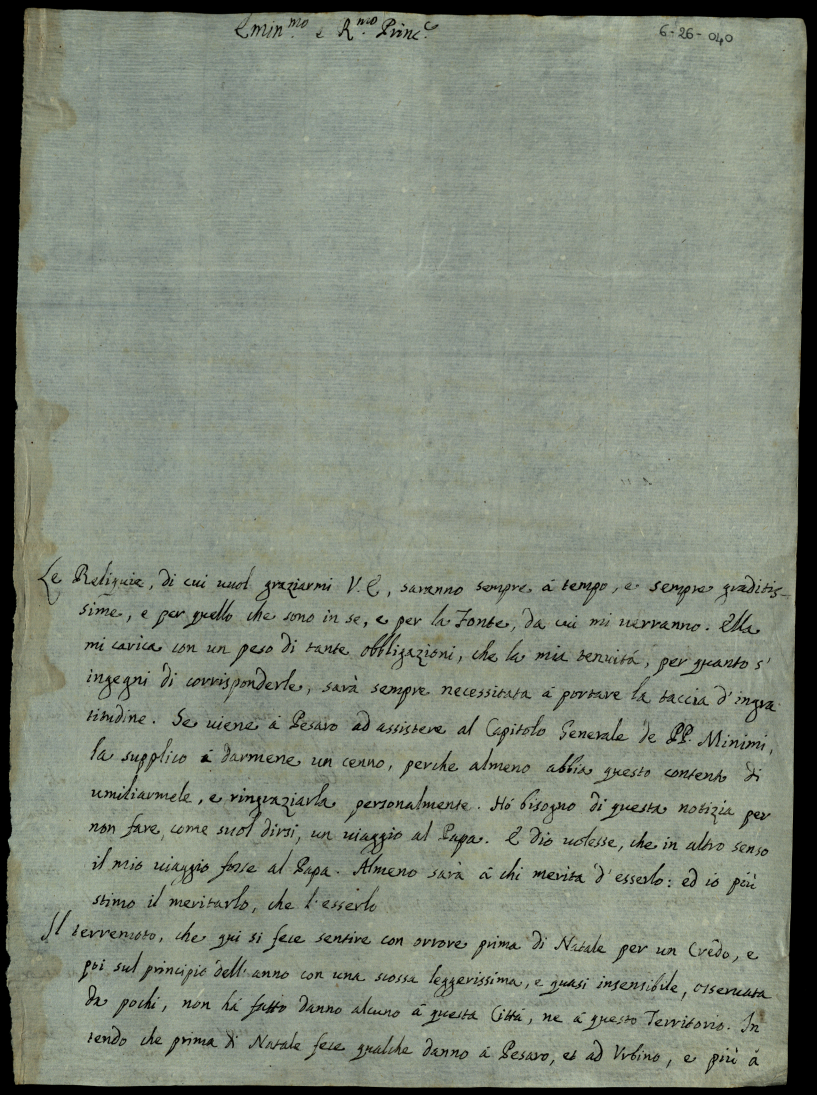 Emin.mo e R.mo Princ.e
6-26-040
Le Reliquie, di cui vuol graziarmi V. E., saranno sempre á tempo, e sempre graditis-
sime, e per quello che sono in se, e per la Fonte, da cui mi verranno. Ella
mi carica con un peso di tante obbligazioni, che la mia tenuitá, per quanto s'
ingegni di corrisponderle, sarà sempre necessitata á portare la taccia d'ingra
titudine. Se viene á Pesaro ad assistere al Capitolo Generale de PP. Minimi,
la supplico á darmene un cenno, perche almeno abbia questo contento di
umiliarmele, e ringraziarla personalmente. Hó bisogno di questa notizia per
non fare, come suol dirsi, un viaggio al Papa. E Dio volesse, che in altro senso
il mio viaggio fosse al Papa. Almeno sarà á chi merita d'esserlo: ed io più
stimo il meritarlo, che l'esserlo
Il terremoto, che qui si fece sentire con orrore prima di Natale per un Credo, e
poi sul principio dell'anno con una scossa leggerissima, e quasi insensibile, osservata
da pochi, non há fatto danno alcuno á questa Cittá, ne á questo Territorio. In
tendo che prima di Natale fece qualche danno á Pesaro, et ad Urbino, e più á